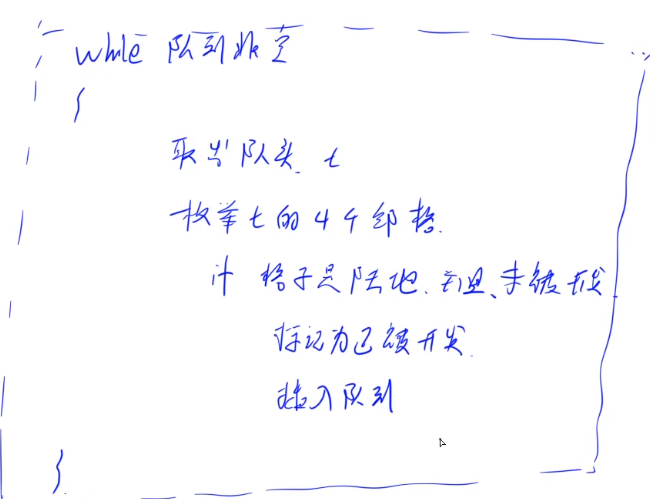 while 队列非空
{
取出队头 t
枚举 t 的 4 个邻格.
if 格子是陆地、并且、未被开发
标记为已被开发.
插入队列
}